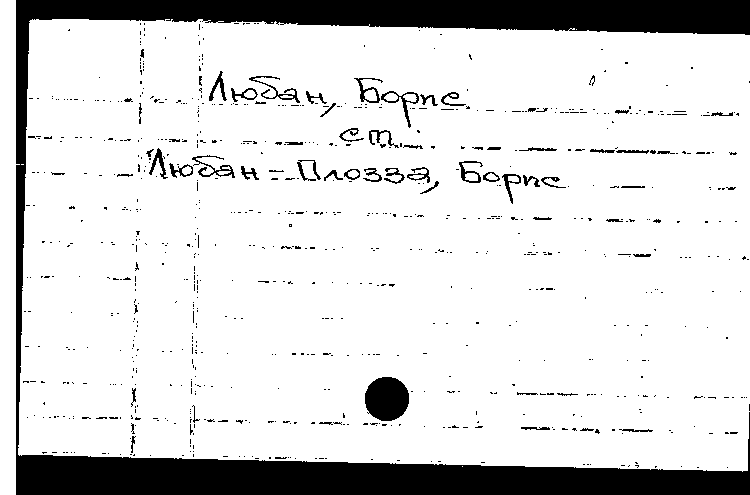 Любан, Борис
ст.
Любан-Плозза, Борис